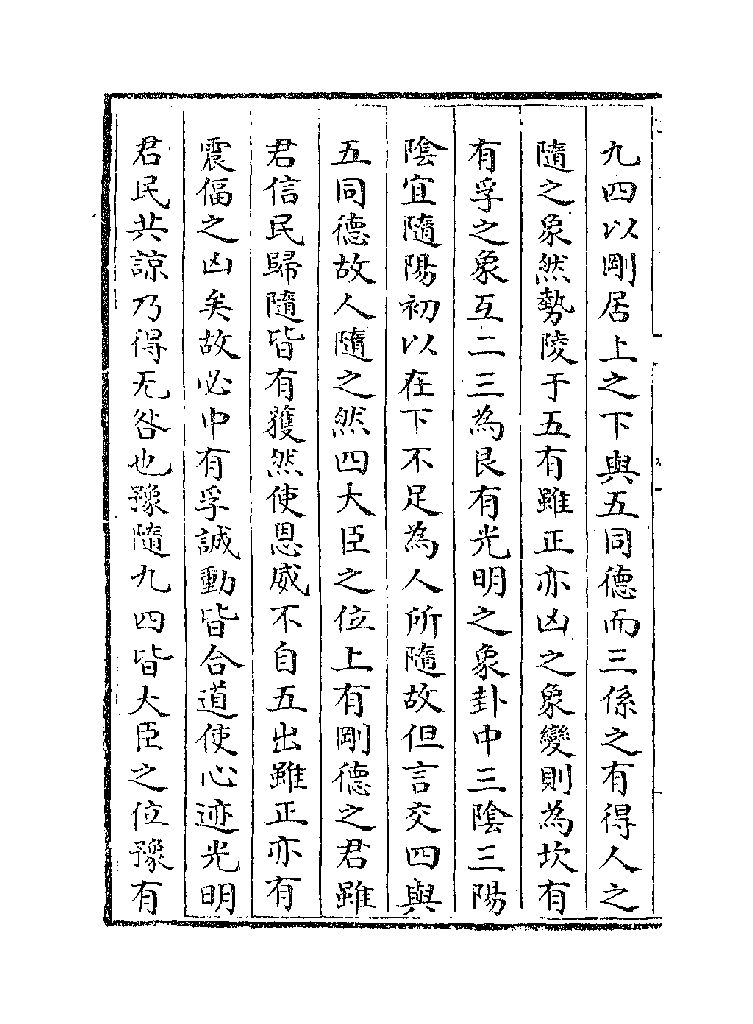 九四以剛居上之下與五同德而三係之有得人之
隨之象然勢陵于五有雖正亦凶之象變則為坎有
有孚之象互二三為艮有光明之象卦中三陰三陽
陰宜隨陽初以在下不足為人所隨故但言交四與
五同德故人隨之然四大臣之位上有剛德之君雖
君信民歸隨皆有獲然使恩威不自五出雖正亦有
震偪之凶矣故必中有孚誠動皆合道使心迹光明
君民共諒乃得无咎也豫隨九四皆大臣之位豫有